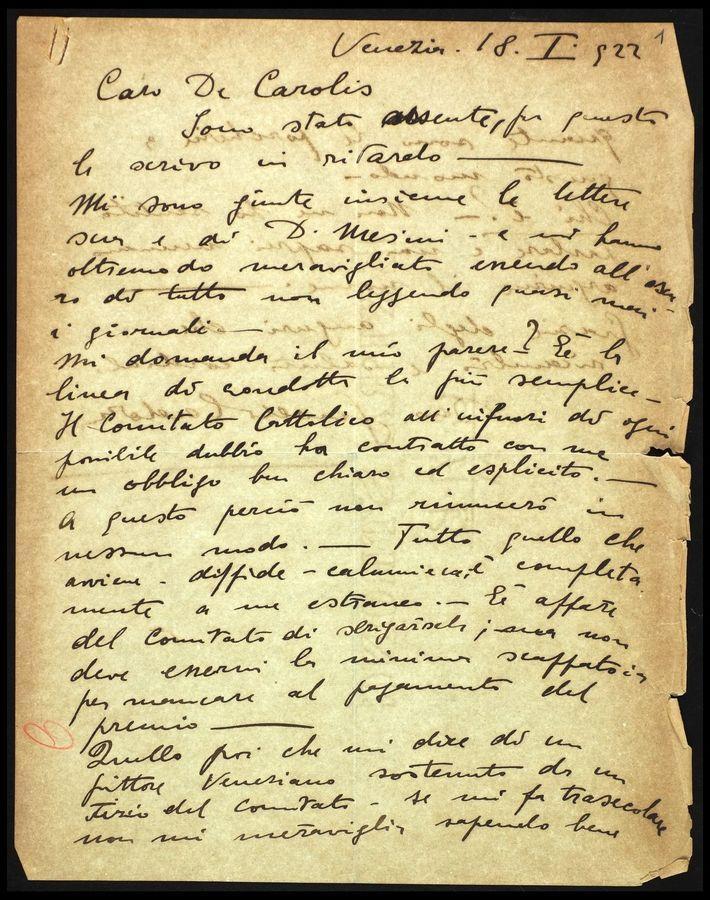 Venezia. 18. I. 922 1
Caro De Carolis
Sono stato assente, per questo
le scrivo in ritardo —
Mi sono giunte insieme le lettere
sua e di D. Mesini - e mi hanno
oltremodo meravigliato essendo all'oscu-
ro di tutto non leggendo quasi mai
i giornali —
Mi domanda il mio parere? È la
linea di condotta la più semplice —
Il Comitato Cattolico all'infuori di ogni
possibile dubbio ha contratto con me
un obbligo ben chiaro ed esplicito. —
A questo perciò non rinuncerò in
nessun modo. — Tutto quello che
avviene - diffide - calunnie ca, è completa
mente a me estraneo. — È affare
del Comitato di sbrigarsela; ma non
deve esservi la minima scappatoia
per mancare al pagamento del
premio —
Quello poi che mi dice di un
pittore Veneziano sostenuto da un
Tizio del Comitato - se mi fa trasecolare
non mi meraviglia sapendo bene